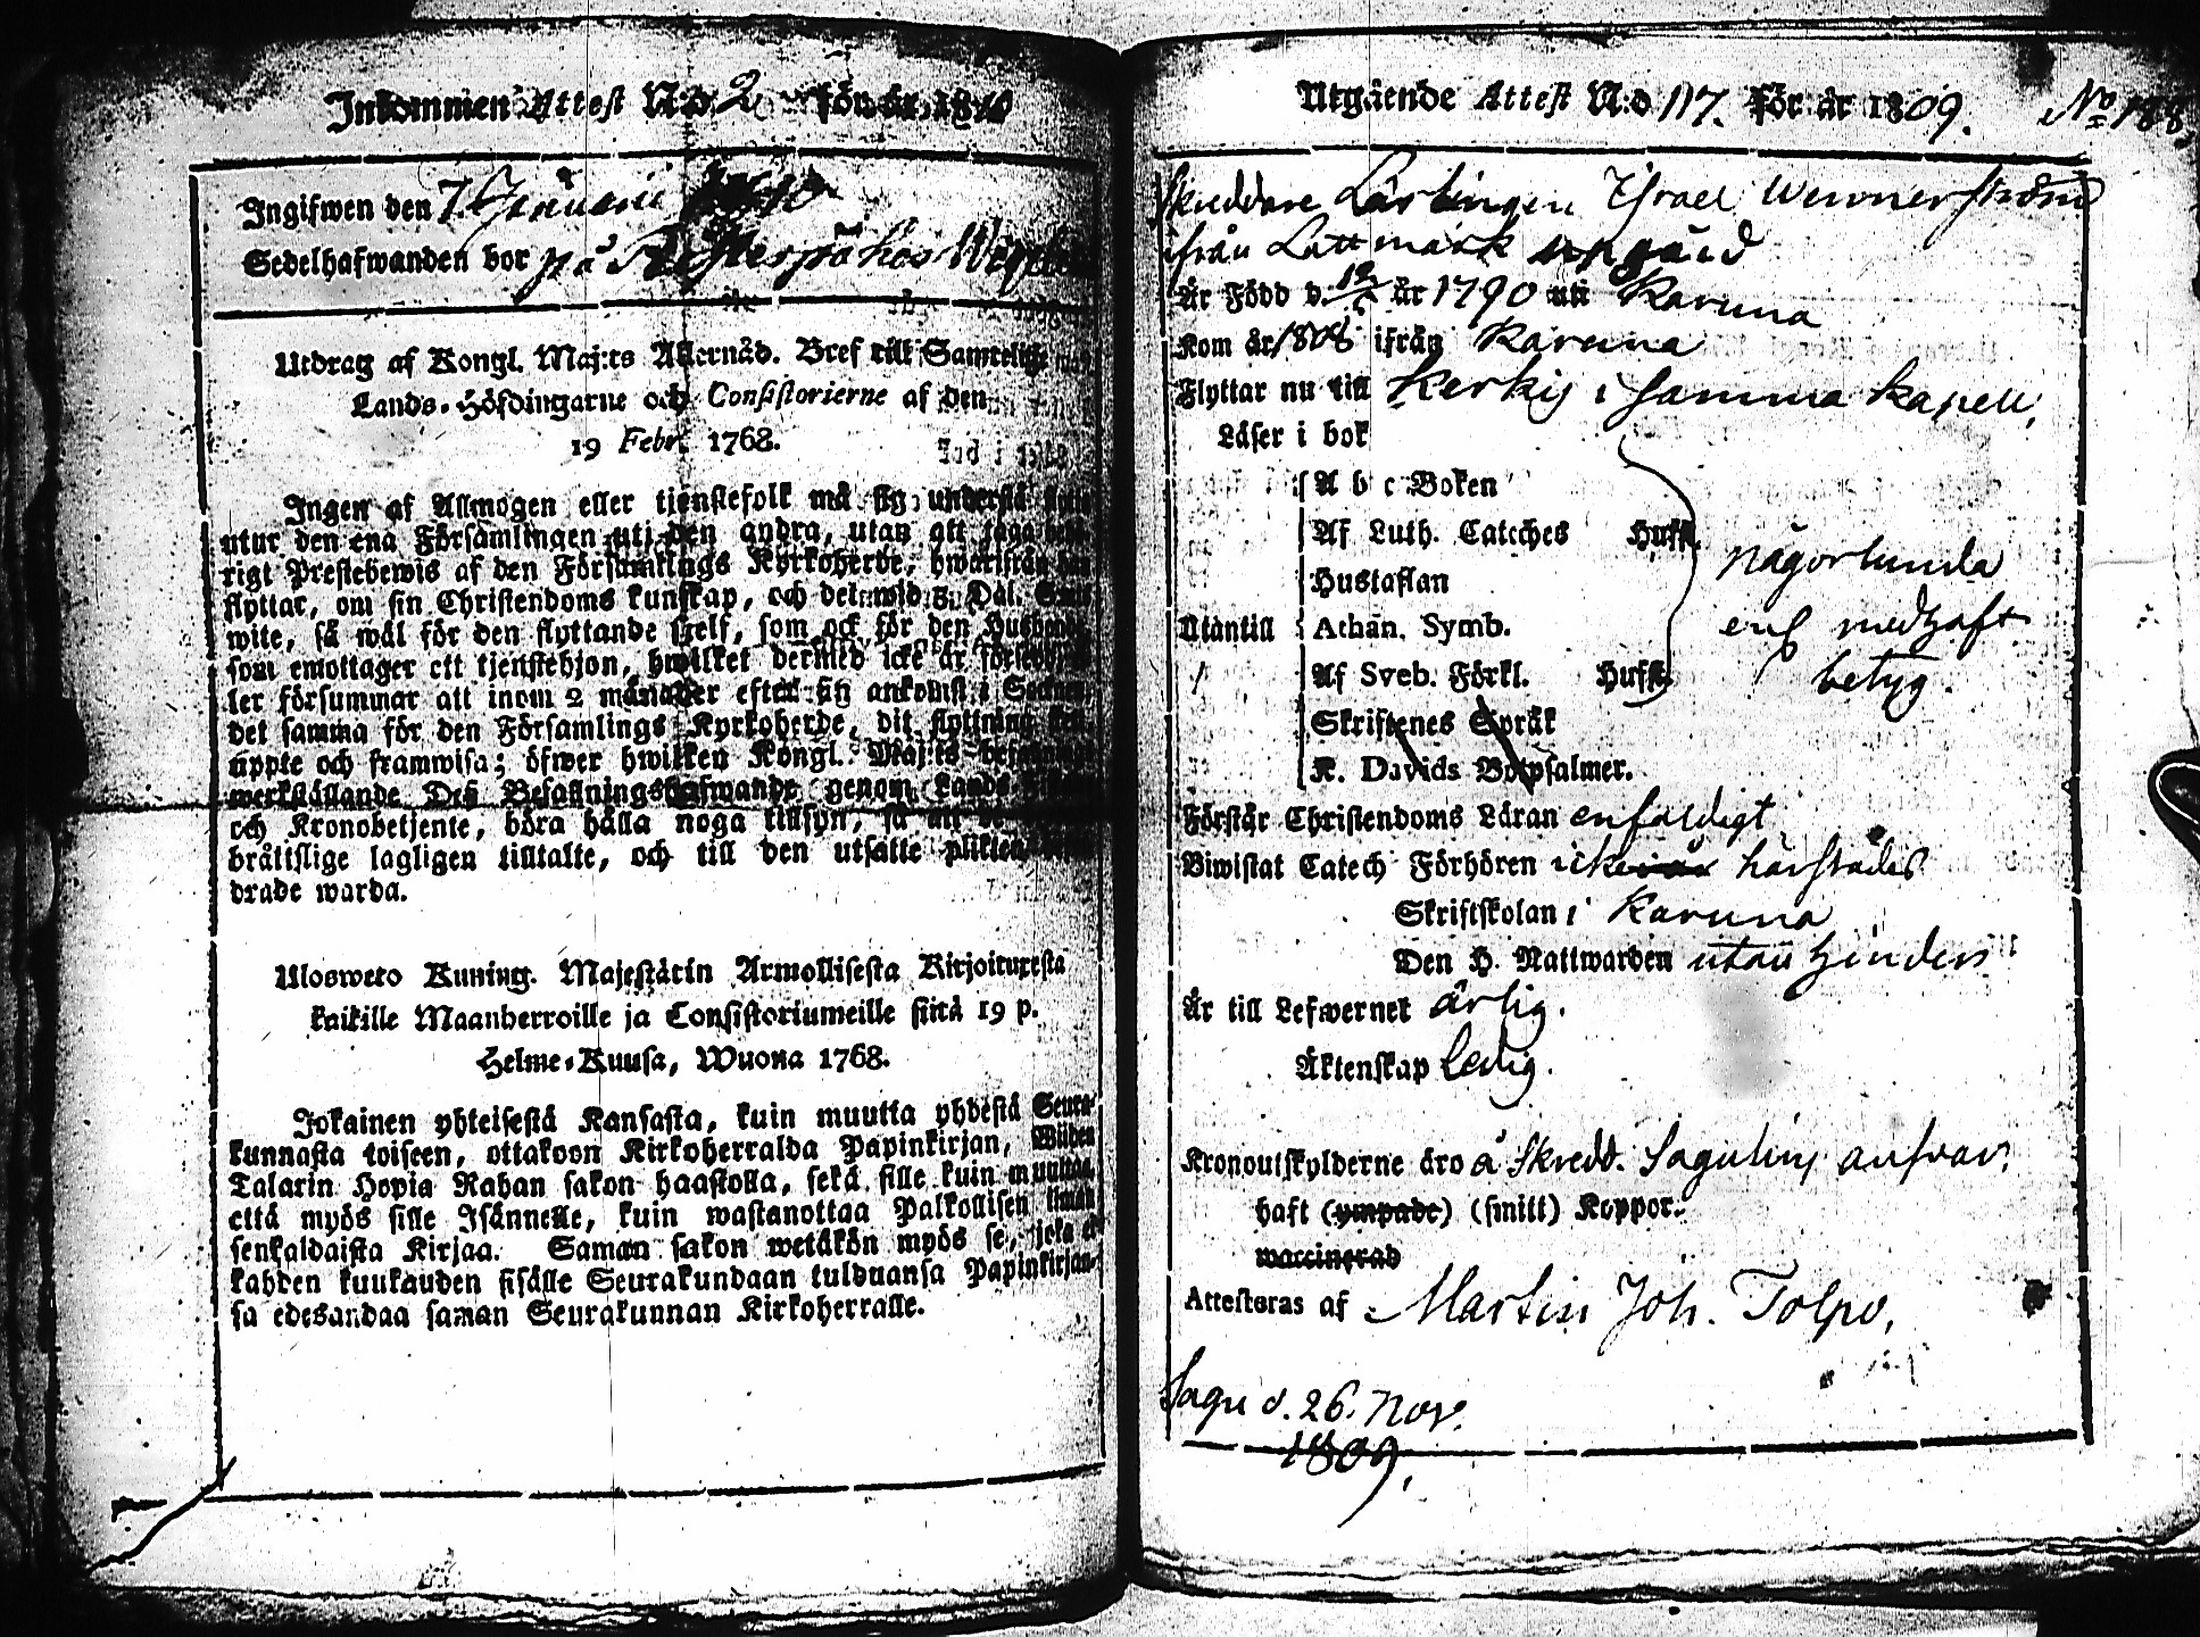 Inkommen Attest N:o 2 för år 1810
Ingifwen den 7. Januarii
Sedelhafwanden bor på
Utdrag af Kongl. Maj:ts Allernåd. Bref till Samtelige
Lands-Höfdingarne och Consistorierne af den
19 Febr. 1768.
Ingen af Allmogen eller tjenstefolk må sig understå
utur den ena Församlingen uti den andra, utan att taga
rigt Prestebewis af den Församlings Kyrkoherde, hwarifrån han
flyttar, om sin Christendoms kunskap, och det wid 5. Dal. S:mts
wite, så wäl för den flyttande sjelf, som ock för den Husbonde,
som emottager ett tjenstehjon, hwilket dermed icke är försedt,
ler försummar att inom 2 månader efter sin ankomst i Socknen,
det samma för den Församlings Kyrkoherde, dit flyttning
uppte och framwisa; öfwer hwilken Kongl. Maj:ts
werkställande Des Befallningshafwande genom Lands
och Kronobetjente, böra hålla noga tillsyn, så att de
bråttslige lagligen tilltalte, och till den utsatte plikten
drade warda.
Ulosweto Kuning. Majestätin Armollisesta Kirjoituxesta
kaikille Maanherroille ja Consistoriumeille siitä 19 p.
Helme-Kuusa, Wuona 1768.
Jokainen yhteisestä Kansasta, kuin muutta yhdestä Seura-
kunnasta toiseen, ottakoon Kirkoherralda Papinkirjan, Wiiden
Talarin Hopia Rahan sakon haastolla, sekä sille kuin muuttaa,
että myös sille Isännelle, kuin wastanottaa Palkollisen ilman
senkaldaista Kirjaa. Saman sakon wetäkön myös se, joka ei
kahden kuukauden sisälle Seurakundaan tulduansa Papinkirjan-
sa edesandaa saman Seurakunnan Kirkoherralle.
Utgående Attest N:o 117. För år 1809. No 188
Skreddare Lärlingen Israel Wennerström
ifrån Lattmark
Är Född d. år 1790 uti Karuna
Kom år 1808 ifrån Karuna
Flyttar nu till Kerkis i samma Kapell,
Läser i bok
A b c Boken
Af Luth. Cateches Hufst.
Hustaflan
Utantill Athan. Symb.
Af Sveb. Förkl. Hufst.
Skriftenes Språk
K. Davids Botpsalmer.
någorlunda
enl medhaft
betyg.
Förstår Christendoms Läran enfaldigt
Biwistat Catech Förhören icke härstädes
Skriftskolan i Karuna
Den H. Nattwarden utan hinder
Är till Lefwernet ärlig.
Äktenskap ledig.
Kronoutskylderne äro å Skredd. Sagulins answar.
haft (ympade) (smitt) Koppor.
waccinerad
Attesteras af Martin Joh. Tolpo,
Sagu d. 26. Nov.
1809.